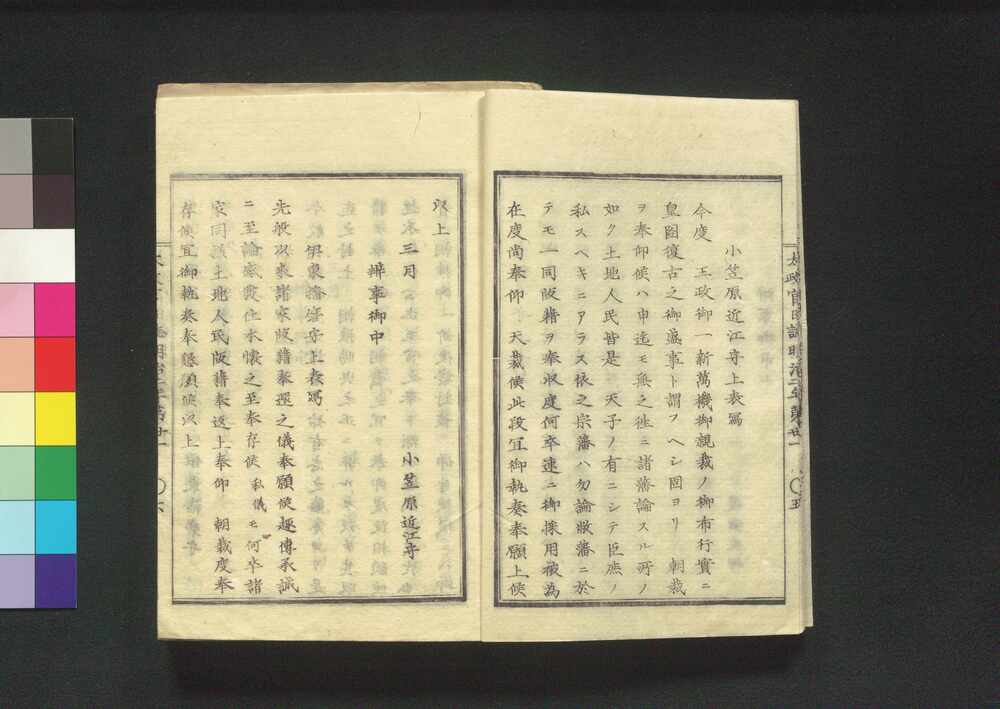 小笠原近江守上表写
今度　王政御一新萬機御親裁ノ御布行實ニ
皇国復古之御盛事ト謂フヘシ固ヨリ　朝裁
ヲ奉仰候ハ申迄モ無之徃ニ諸藩論スル所ノ
如ク土地人民皆是　天子ノ有ニシテ臣庶ノ
私スヘキニアラス依之宗藩ハ勿論敝藩ニ於
テモ一同版籍ヲ奉収度何卒速ニ御採用被為
在度尚奉仰　天裁候此段宜御執奏奉願上候
太政官日誌明治二年第廿一　〇五
以上
三月　小笠原近江守
辨事御中
伊東播磨守上表写
先般以来諸家版籍奉還之儀奉願候趣傳承誠
ニ至論感戴仕本懐之至奉存候私儀モ何卒諸
家同様土地人民版籍奉返上奉仰　朝裁度奉
存候宜御執奏奉懇願候以上
明治二年第廿一　〇六